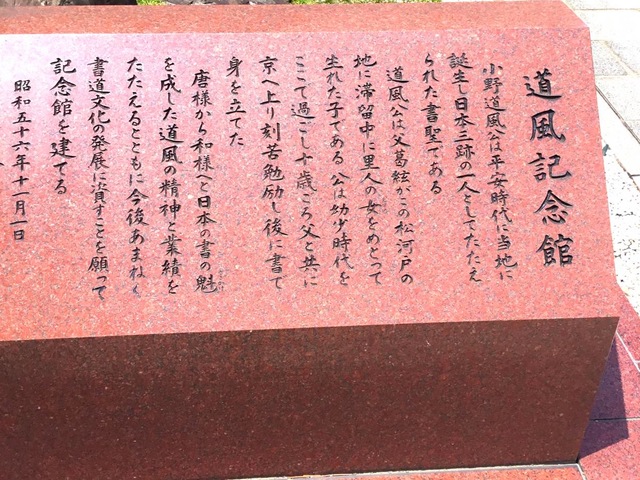 道風記念館
小野道風公は平安時代に当地に
誕生し日本三跡の一人としてたたえ
られた書聖である
道風公は父葛絃がこの松河戸の
地に滞留中に里人の女をめとって
生れた子である 公は幼少時代を
ここで過ごし十歳ごろ父と共に
京へ上り刻苦勉励し後に書で
身を立てた
唐様から和様へと日本の書の魁
を成した道風の精神と業績を
たたえるとともに今後あまねく
書道文化の発展に資すことを願って
記念館を建てる
昭和五十六年十一月一日